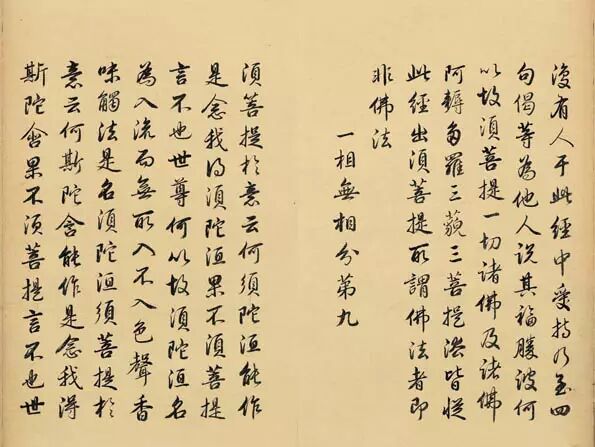 復有人于此經中受持乃至四
句偈等為他人說其福勝彼何
以故須菩提一切諸佛及諸佛
阿耨多羅三藐三菩提法皆從
此經出須菩提所謂佛法者即
非佛法
一相無相分第九
須菩提於意云何須陀洹能作
是念我得須陀洹果不須菩提
言不也世尊何以故須陀洹名
為入流而無所入不入色聲香
味觸法是名須陀洹須菩提於
意云何斯陀含能作是念我得
斯陀含果不須菩提言不也世